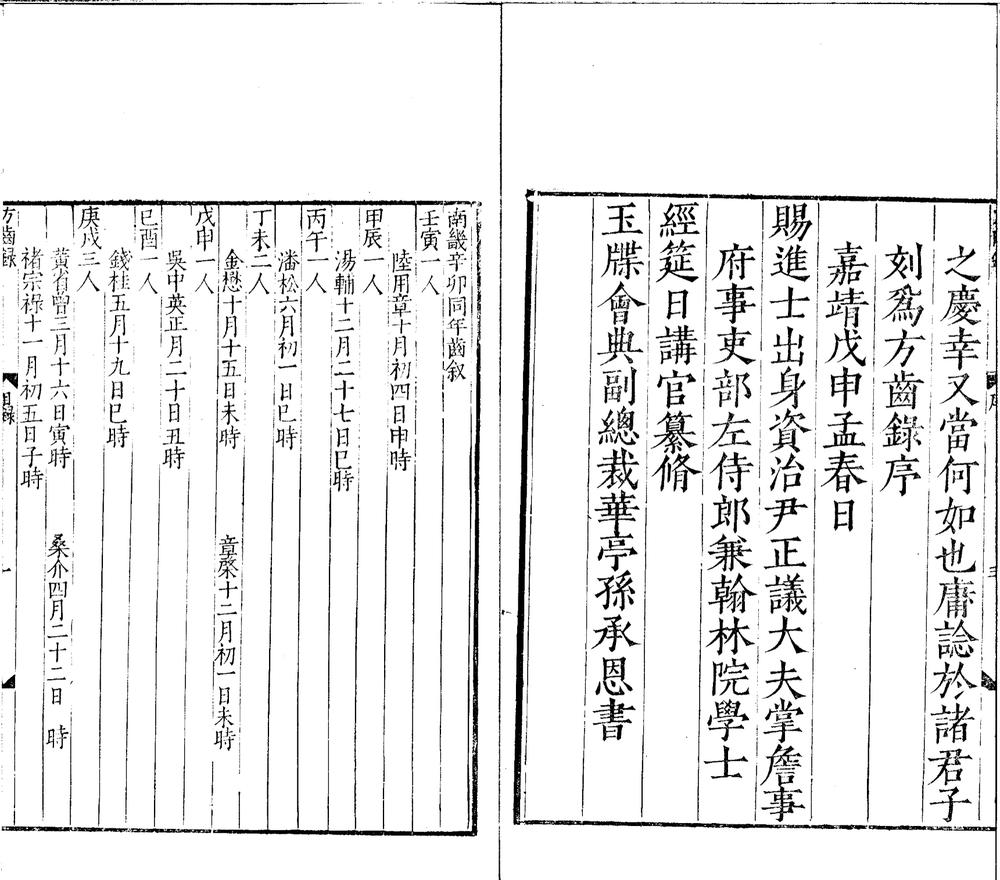 之慶幸又當何如也庸諗於諸君子
刻爲方齒錄序
嘉靖戊申孟春日
賜進士出身資治尹正議大夫掌詹事
府事吏部左侍郎兼翰林院學士
經筵日講官纂脩
玉牒會典副總裁華亭孫承恩書
南畿辛卯同年齒叙
壬寅一人
陸用章十月初四日申時
甲辰一人
湯輔十二月二十七日巳時
丙午一人
潘松六月初一日巳時
丁未二人
金懋十月十五日未時 章棨十二月初一日未時
戊申一人
吳中英正月二十日丑時
巳酉一人
錢桂五月十九日巳時
庚戌三人
黃省曾三月十六日寅時 桑介四月二十二日 時
褚宗祿十一月初五日子時
方齒錄 目錄 一